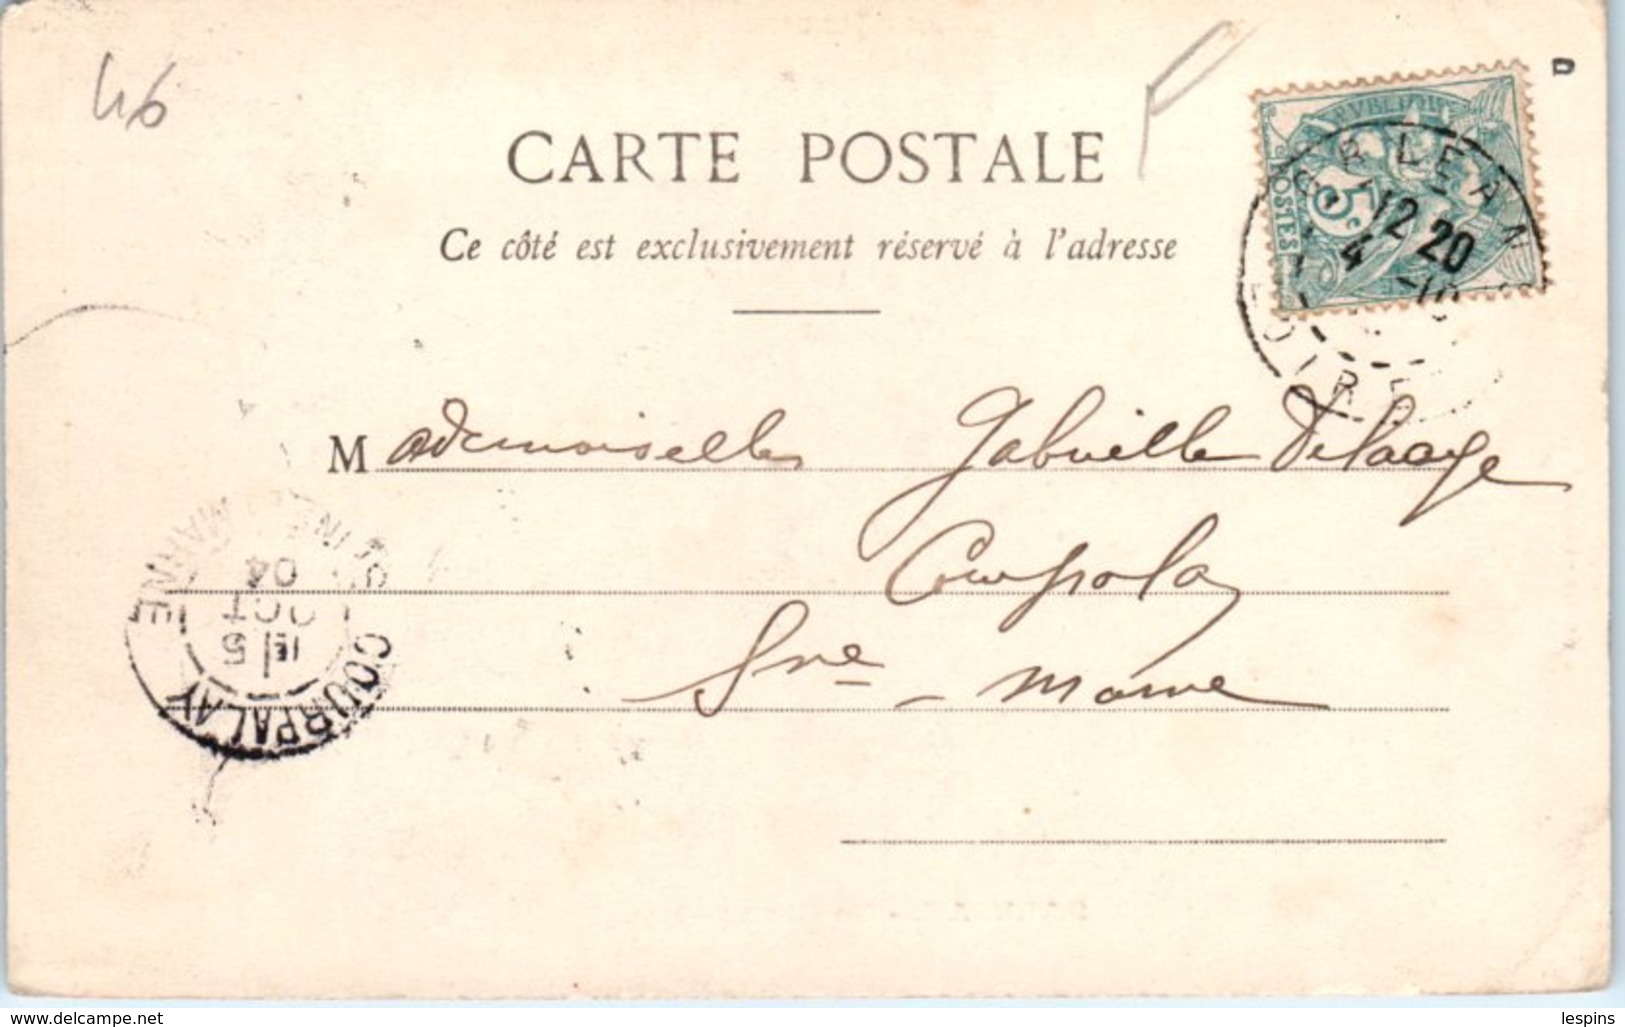 46
CARTE POSTALE
Ce côté est exclusivement réservé à l'adresse
RÉPUBLIQUE
POSTES
5c
ORLEANS
12 20
4 -10
LOIRET
Mademoiselle Gabrielle Delaage
Courpalay
Sne - Marne
COURPALAY
SEINE ET MARNE
5
OCT
04
www.delcampe.net
lespins